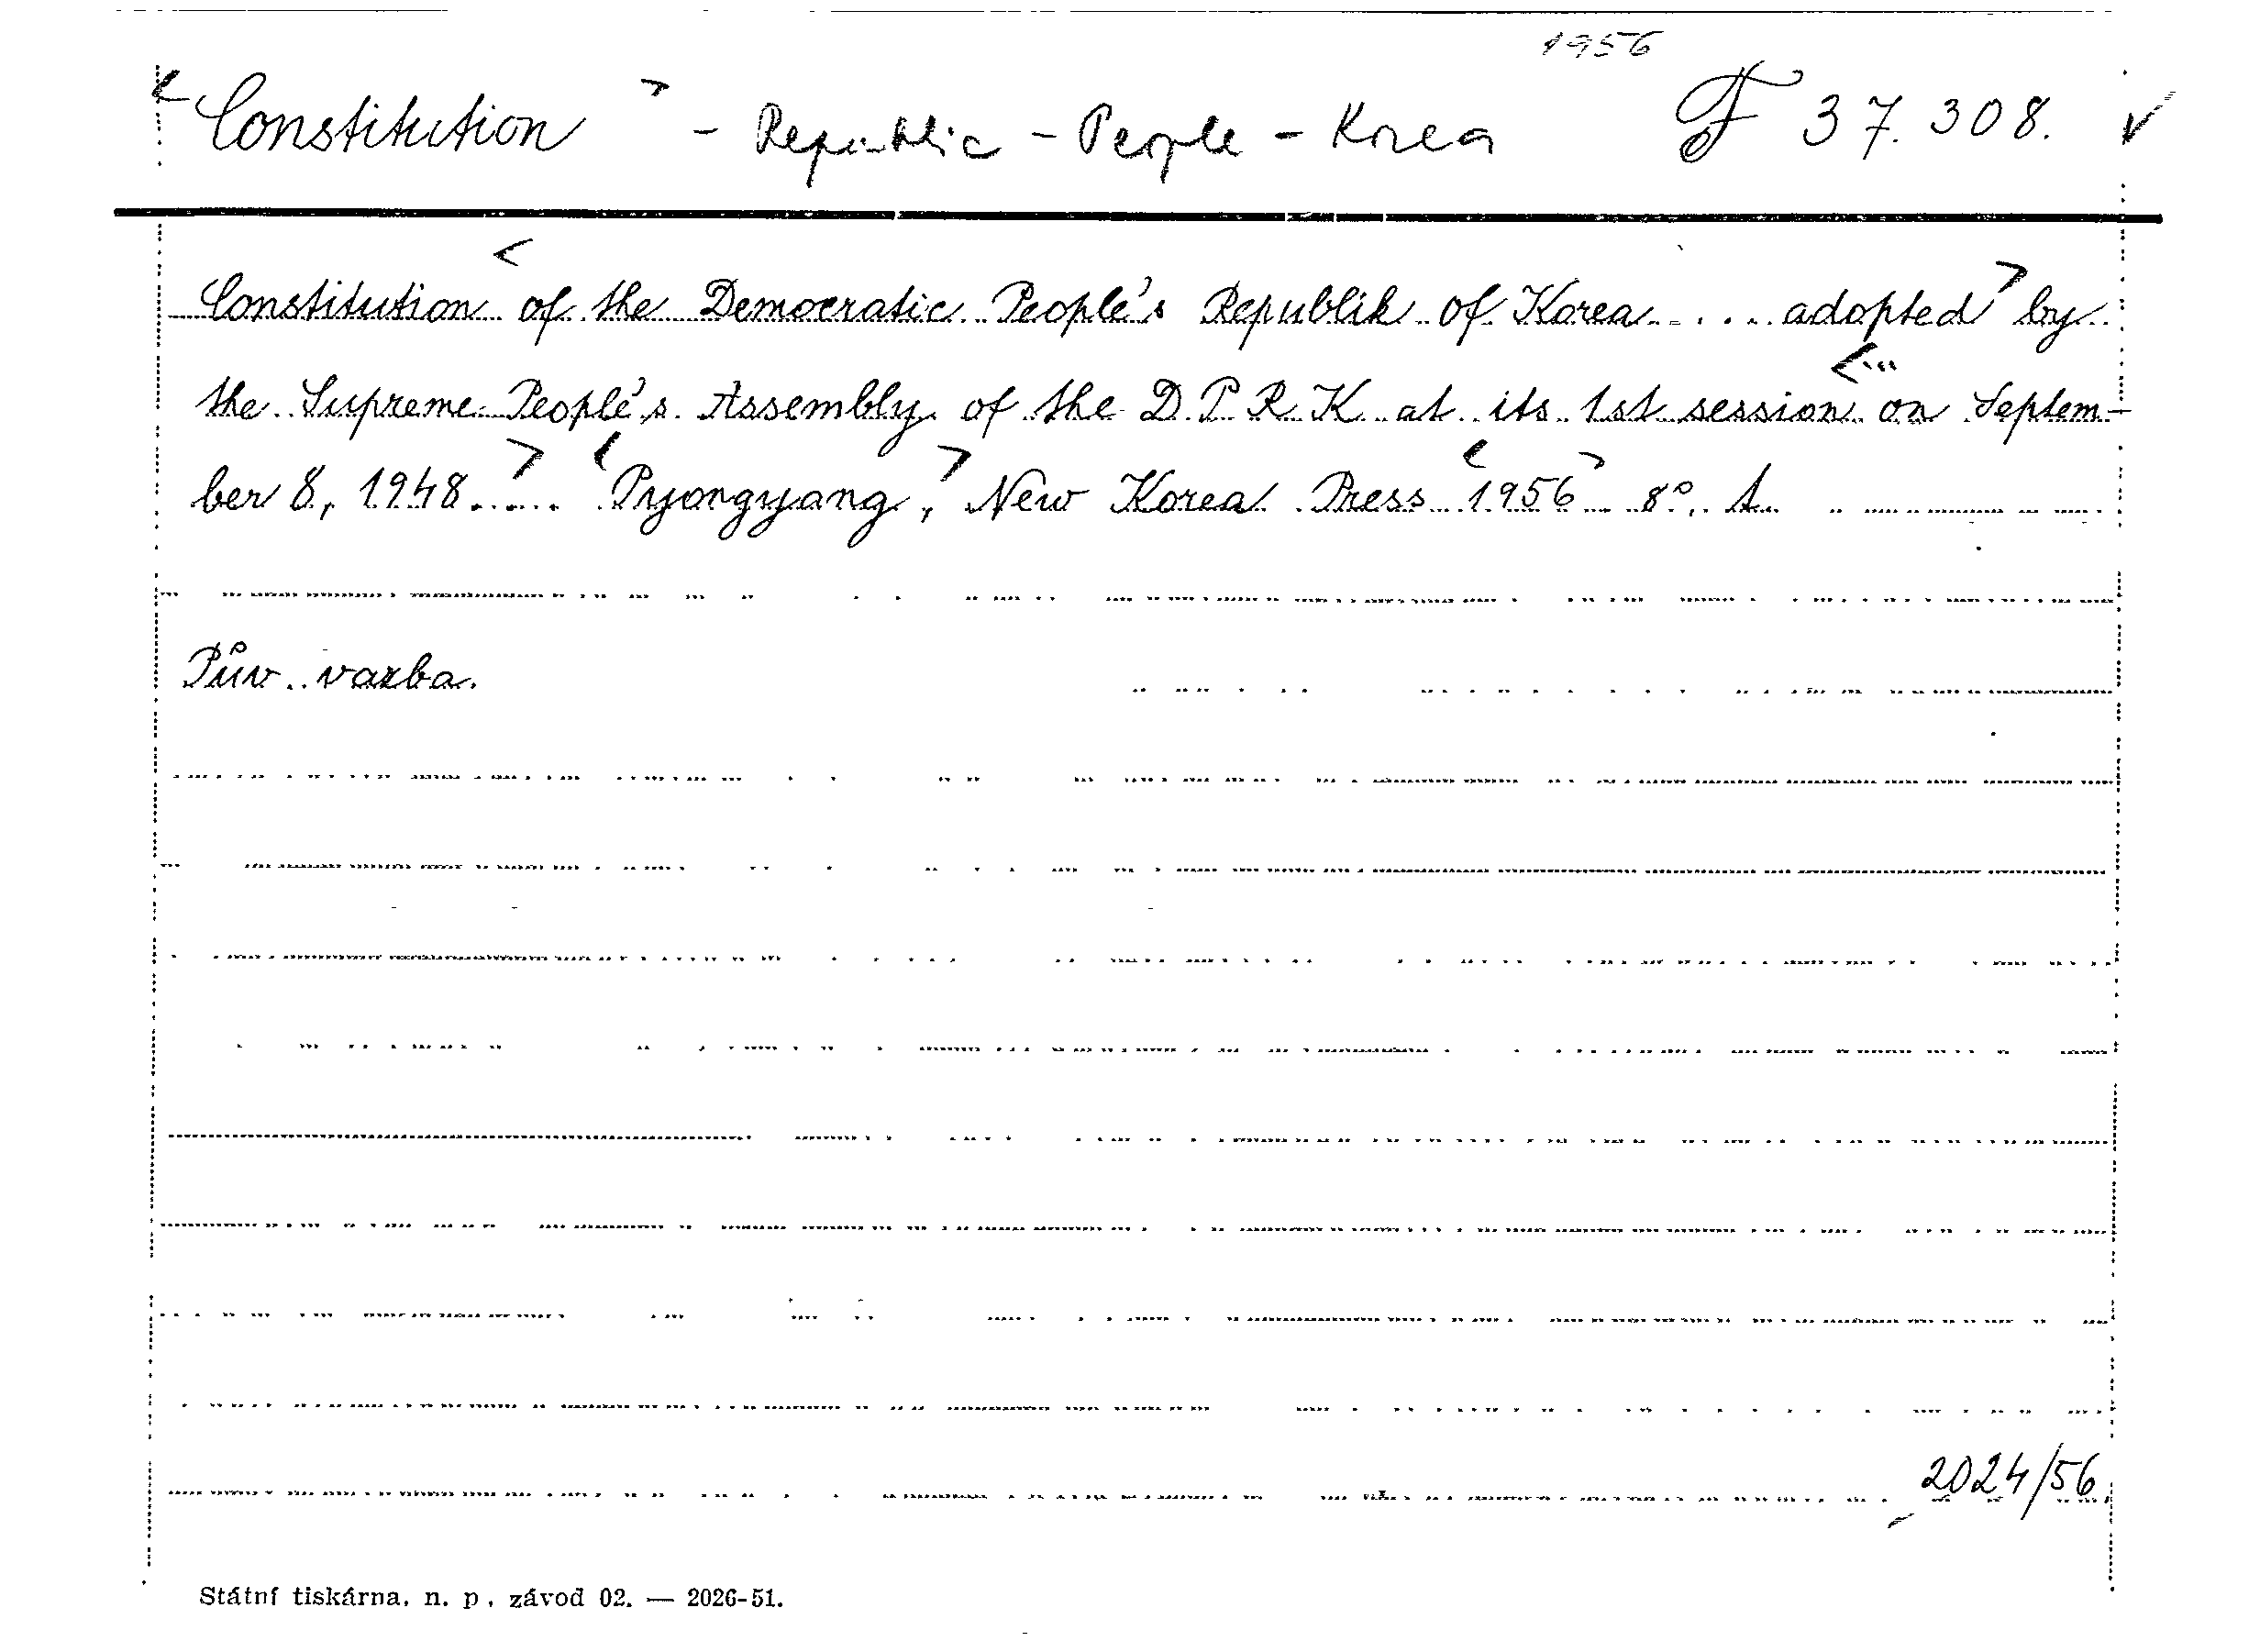 1956
< Constitution > - Republic - People - Korea F 37.308. v
Constitution < of the Democratic People's Republik of Korea .... adopted > by
the Supreme People's Assembly of the D.P.R.K at its 1st session <... on Septem-
ber 8, 1948.... > < Pyongyang, > New Korea Press < 1956 > 8°.
Pův. vazba.
2024/56.
Státní tiskárna, n. p., závod 02. — 2026-51.